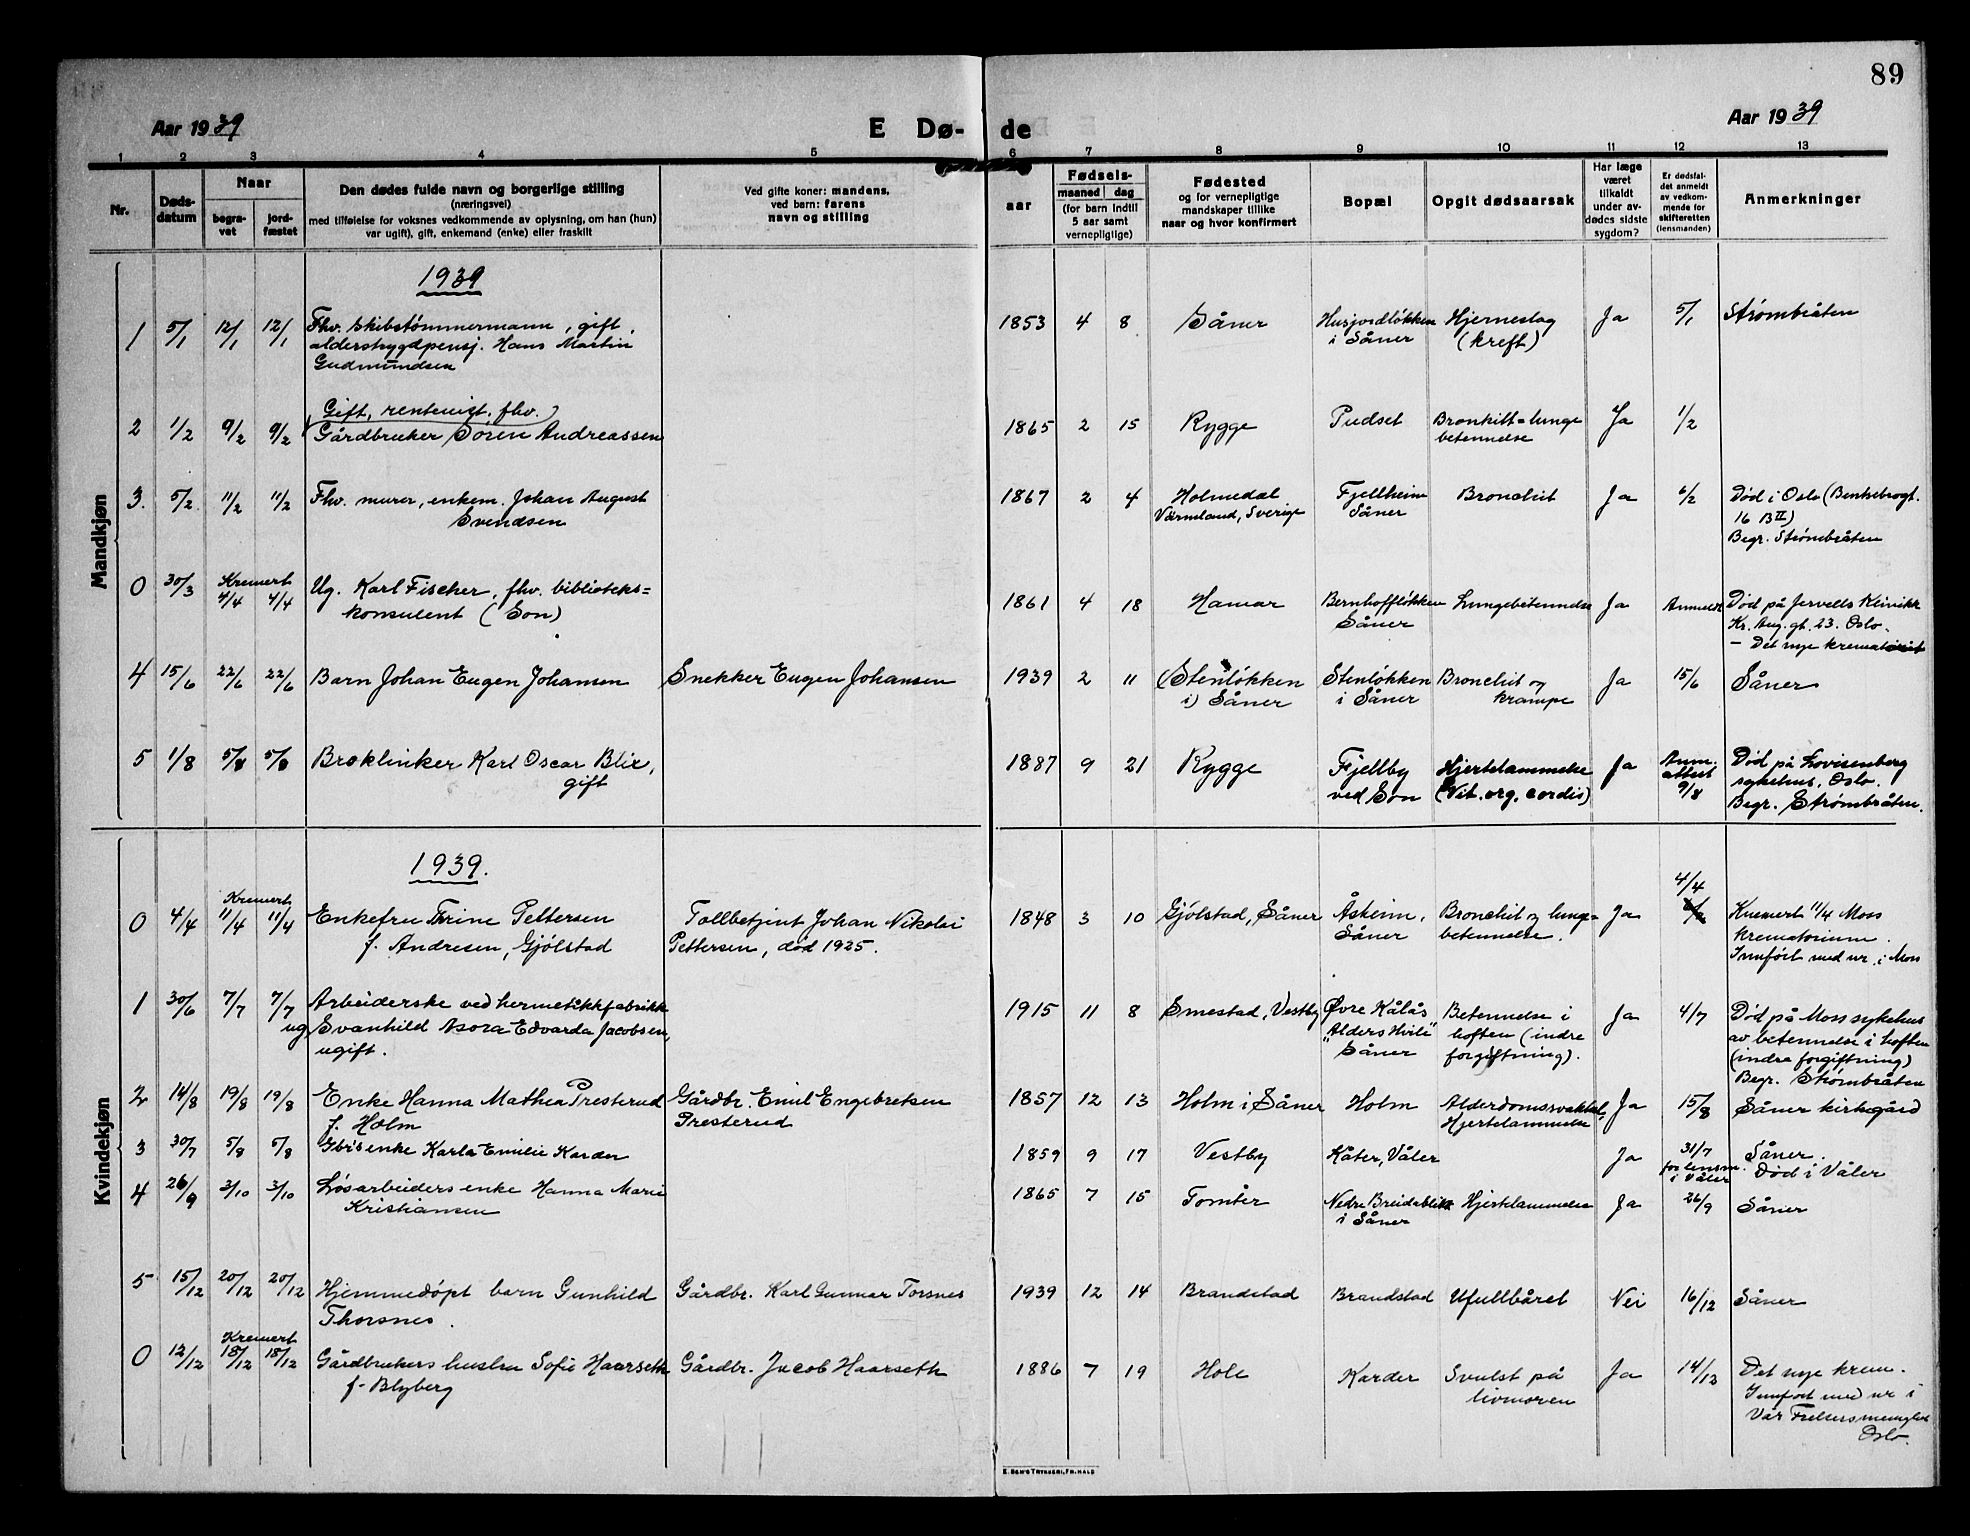 89
Aar 1939
E Dø-
de
Aar 1939
1 2 3 4 5 6 7 8 9 10 11 12 13
Nr.
Døds-
datum
Naar
begra-
vet
jord-
fæstet
Den dødes fulde navn og borgerlige stilling
(næringsvei)
med tilføielse for voksnes vedkommende av oplysning, om han (hun)
var ugift), gift, enkemand (enke) eller fraskilt
Ved gifte koner: mandens,
ved barn: farens
navn og stilling
Fødsels-
aar
maaned dag
(for barn indtil
5 aar samt
vernepligtige)
Fødested
og for vernepligtige
mandskaper tillike
naar og hvor konfirmert
Bopæl
Opgit dødsaarsak
Har læge
været
tilkaldt
under av-
dødes sidste
sygdom?
Er dødsfal-
det anmeldt
av vedkom-
mende for
skifteretten
(lensmanden)
Anmerkninger
Mandkjøn
1939
1 5/1 12/1 12/1 Fhv. skibstømmermann, gift,
alderstrygdpensj. Hans Martin
Gudmundsen
1853 4 8 Såner Husjordløkken
i Såner
Hjerneslag
(kreft)
Ja 5/1 Strømbråten
2 1/2 9/2 9/2 Gift, rentenist, fhv.
Gårdbruker Søren Andreassen
1865 2 15 Rygge Pudset Bronkitt=lunge
betennelse
Ja 1/2
3. 5/2 11/2 11/2 Fhv. murer, enkem. Johan August
Svendsen
1867 2 4 Holmedal
Värmland, Sverige
Fjellheim
Såner
Bronchit Ja 6/2 Død i Oslo (Benkebrogt.
16 B II)
Begr. Strømbråten
0 30/3 Kremert
4/4 4/4 Ug. Karl Fischer, fhv. biblioteks=
konsulent (Son)
1861 4 18 Hamar Bernhoffløkken
Såner
Lungebetennelse Ja Anmeldt Død på Jervells Klinikk
Kr. Aug. gt. 23. Oslo.
— Det nye krematoriet
4 15/6 22/6 22/6 Barn Johan Eugen Johansen Snekker Eugen Johansen
1939 2 11 (Stenløkken
i) Såner
Stenløkken
i Såner
Bronchit og
krampe
Ja 15/6 Såner
5 1/8 5/8 5/8 Broklinker Karl Oscar Blix,
gift
1887 9 21 Rygge Fjellby
ved Son
Hjertelammelse
(Vit. org. cordis)
Ja Anm.
attest
9/8
Død på Lovisenberg
sykehus, Oslo.
Begr. Strømbråten.
Kvindekjøn
1939.
0 4/4 Kremert
11/4 11/4 Enkefru Thrine Pettersen
f. Andresen, Gjølstad
Tollbetjent Johan Nikolai
Pettersen, død 1925.
1848 3 10 Gjølstad, Såner Åsheim,
Såner
Bronchit og lunge=
betennelse.
Ja 4/4 Kremert 11/4 Moss
krematorium.
Innført med nr. i Moss
1 30/6 7/7 7/7 Arbeiderske ved hermetikkfabrikk
ug. Svanhild Asora Edvarda Jacobsen,
ugift.
1915 11 8 Smestad, Vestby Øvre Kålås
"Alders Hvile"
Såner
Betennelse i
hoften (indre
forgiftning).
Ja 4/7 Død på Moss sykehus
av betennelse i hoften
(indre forgiftning)
Begr. Strømbråten
2 14/8 19/8 19/8 Enke Hanna Mathea Presterud
f. Holm
Gårdbr. Emil Engebretsen
Presterud
1857 12 13 Holm i Såner Holm Alderdomssvakhet,
Hjertelammelse
Ja 15/8 Såner kirkegård
3 30/7 5/8 5/8 Gbrs enke Karla Emilie Karder
1859 9 17 Vestby Kåter, Våler Ja 31/7
for lensm.
i Våler
Såner.
Død i Våler
4 26/9 3/10 3/10 Løsarbeiders enke Hanna Marie
Kristiansen
1865 7 15 Tomter Nedre Breidablikk
i Såner
Hjertelammelse Ja 26/9 Såner
5 15/12 20/12 20/12 Hjemmedøpt barn Gunhild
Thorsnes.
Gårdbr. Karl Gunnar Torsnes
1939 12 14 Brandstad Brandstad Ufullbåret Nei 16/12 Såner
0 12/12 Kremert
18/12 18/12 Gårdbrukers hustru Sofie Haarseth
f. Blyberg
Gårdbr. Jacob Haarseth
1886 7 19 Hole Karder Svulst på
livmoren
Ja 14/12 Det nye krem.
Innført med nr i
Vår Frelsersmenighet
Oslo.
E. SEM'S TRYKKERI, FR.HALD